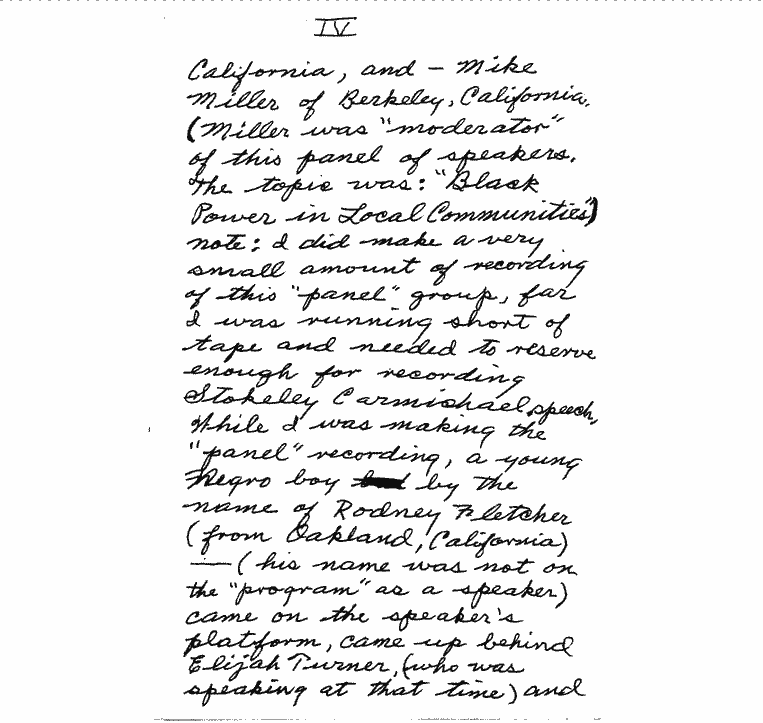 IV
California, and – Mike
Miller of Berkeley, California.
(Miller was "moderator"
of this panel of speakers.
The topic was: "Black
Power in Local Communities")
note: I did make a very
small amount of recording
of this "panel" group, for
I was running short of
tape and needed to reserve
enough for recording
Stokeley Carmichael speech,
While I was making the
"panel" recording, a young
Negro boy by the
name of Rodney Fletcher
(from Oakland, California)
— (his name was not on
the "program" as a speaker)
came on the speaker's
platform, came up behind
Elijah Turner, (who was
speaking at that time) and